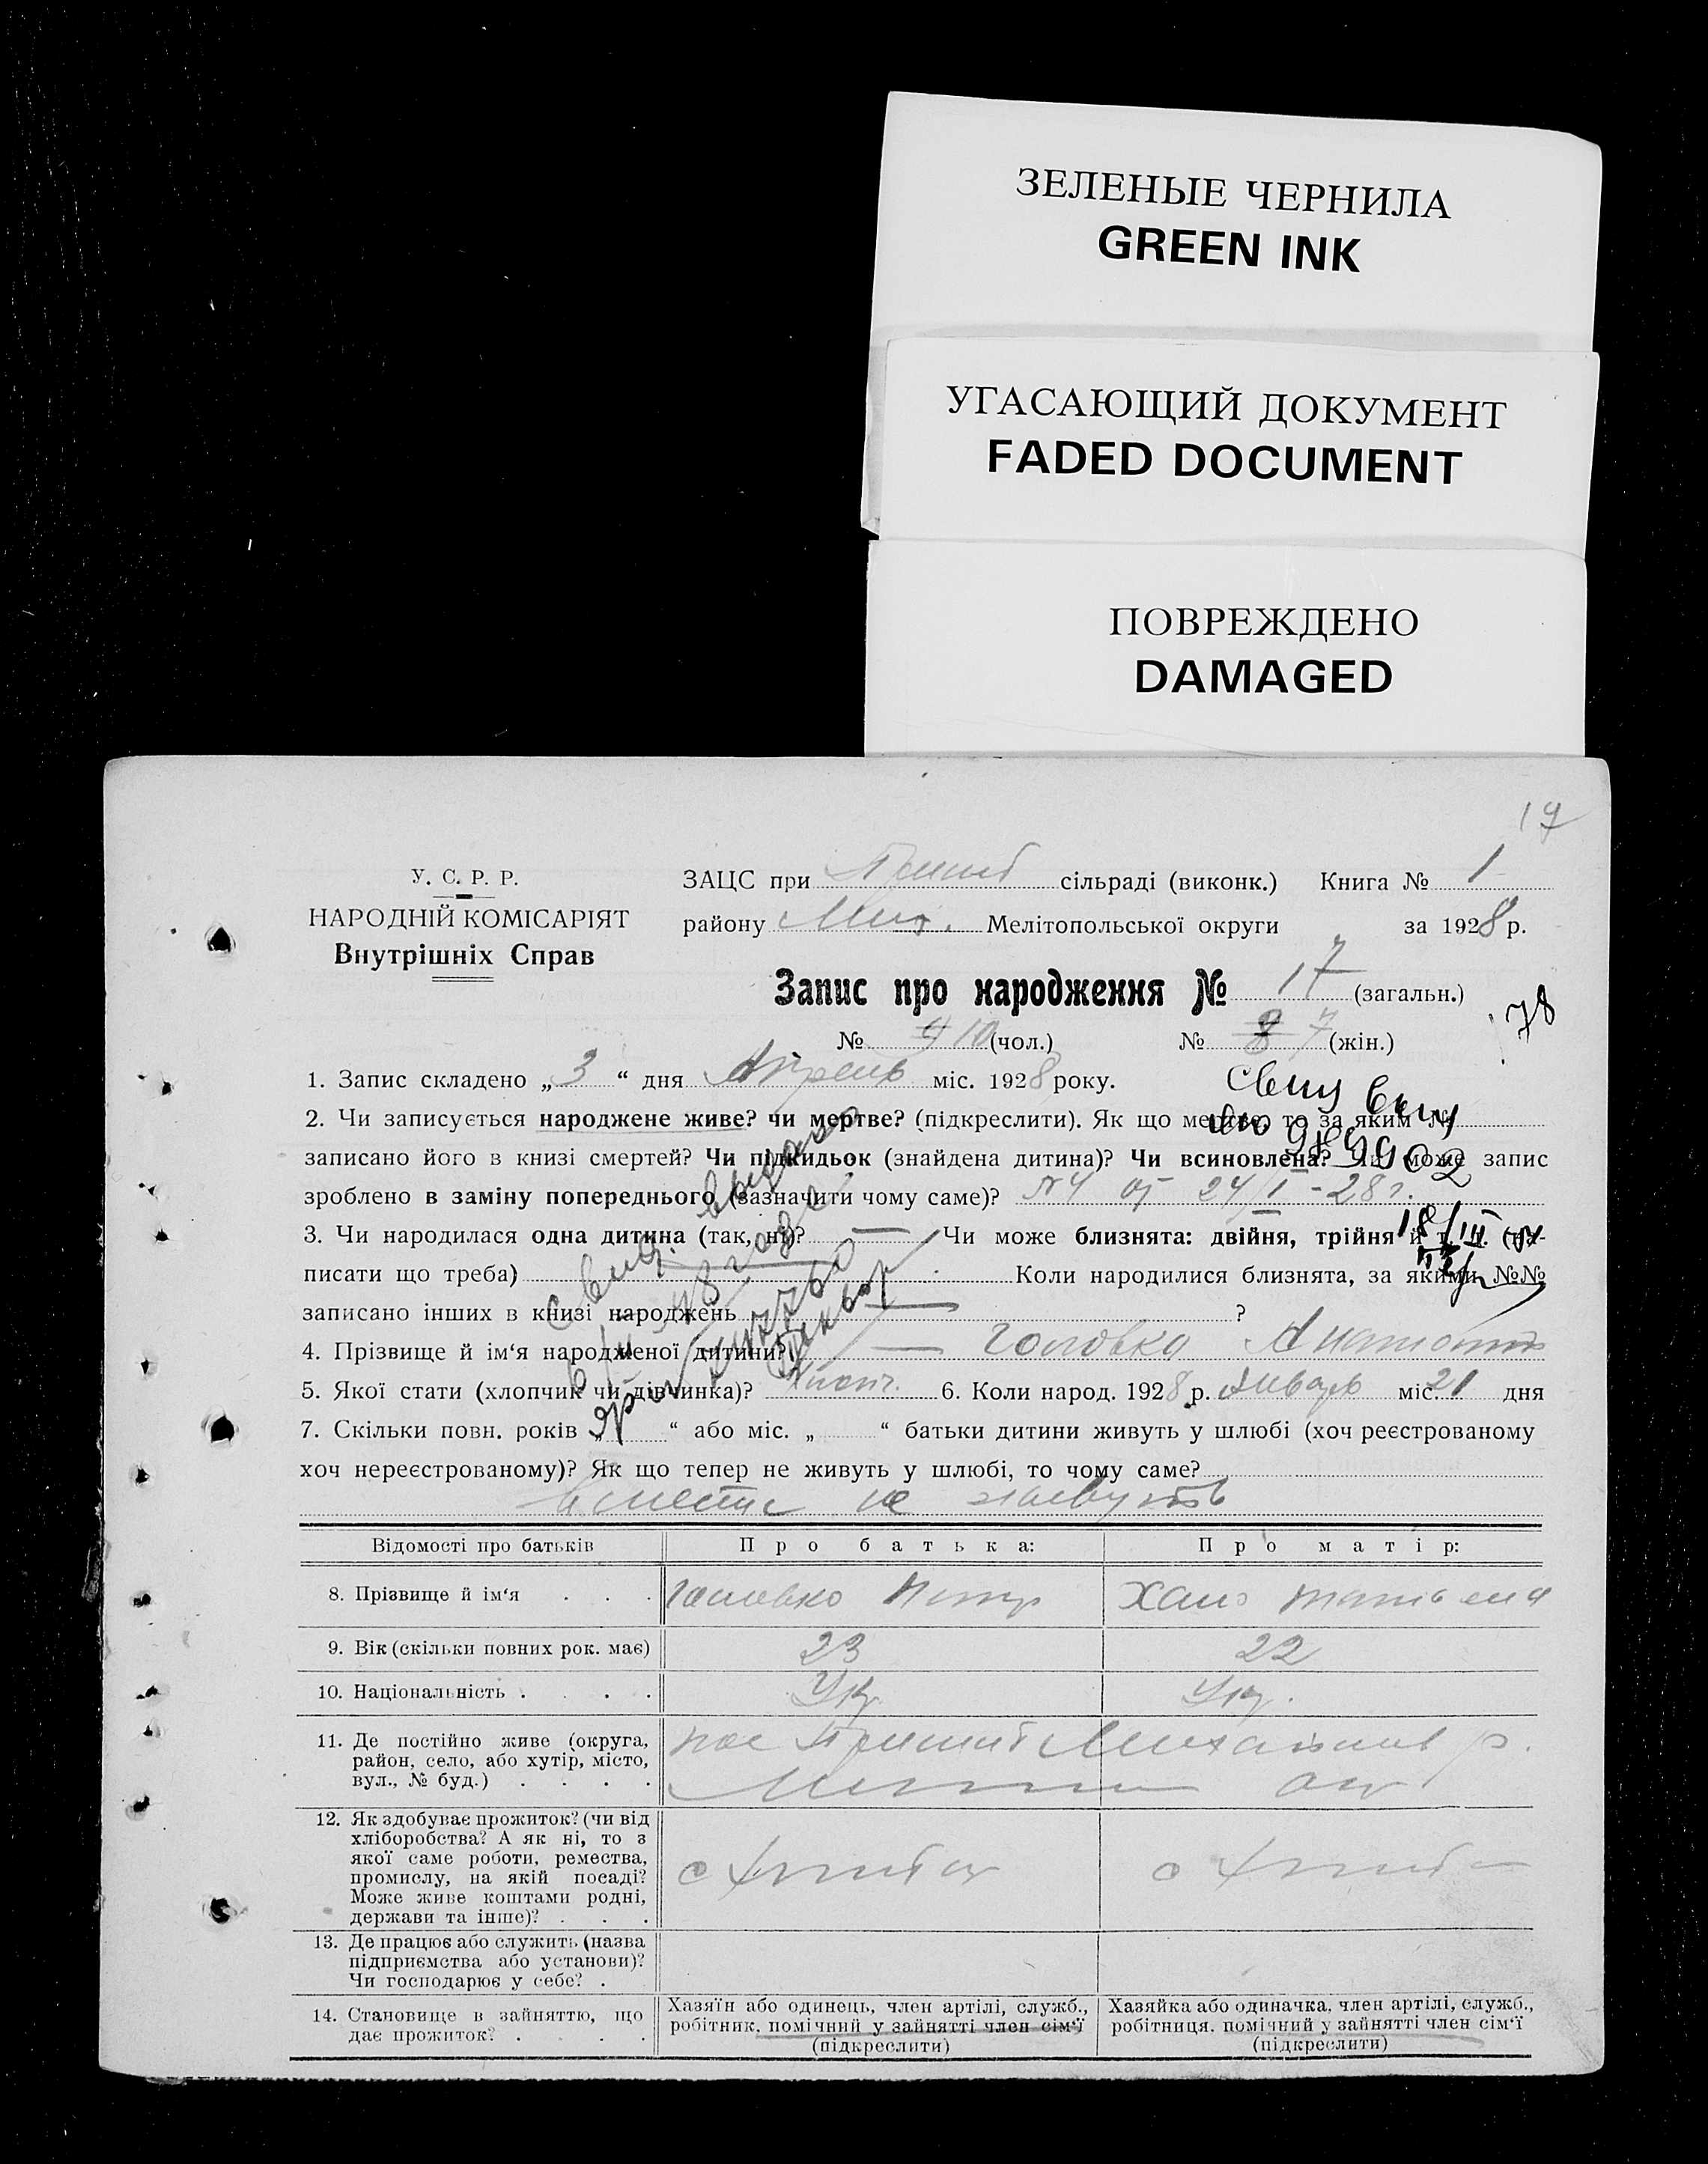 ЗЕЛЕНЫЕ ЧЕРНИЛА
GREEN INK
УГАСАЮЩИЙ ДОКУМЕНТ
FADED DOCUMENT
ПОВРЕЖДЕНО
DAMAGED
У. С. Р. Р.
НАРОДНІЙ КОМІСАРІЯТ
Внутрішніх Справ
ЗАЦС при сільраді (виконк.) Книга № 1
району Мих. Мелітопольської округи за 1928 р.
Запис про народження № 17 (загальн.)
78
№ 10 (чол.) № 8 7 (жін.)
1. Запис складено „ 3 “ дня Апрель міс. 1928 року.
2. Чи записується народжене живе? чи мертве? (підкреслити). Як що мертве, то за яким №
записано його в книзі смертей? Чи підкидьок (знайдена дитина)? Чи всиновлена? Чи може запис
зроблено в заміну попереднього (зазначити чому саме)? №4 от 24/І-28 г.
3. Чи народилася одна дитина (так, ні)? — Чи може близнята: двійня, трійня й т. и. (на-
писати що треба) Коли народилися близнята, за якими №№
записано інших в книзі народжень — ?
4. Прізвище й ім‘я народженої дитини? — Головко
5. Якої стати (хлопчик чи дівчинка)? 6. Коли народ. 1928 р. Январь міс. 21 дня
7. Скільки повн. років „ “ або міс. „ “ батьки дитини живуть у шлюбі (хоч реєстрованому
хоч нереєстрованому)? Як що тепер не живуть у шлюбі, то чому саме?
вместе не живуть
Відомості про батьків Про батька: Про матір:
8. Прізвище й ім‘я . . . Головко Петр Татьяна
9. Вік (скільки повних рок. має) 23 22
10. Національність . . . . Укр. Укр.
11. Де постійно живе (округа,
район, село, або хутір, місто,
вул., № буд.) . . . .
пос Михайлив р.
12. Як здобуває прожиток? (чи від
хліборобства? А як ні, то з
якої саме роботи, ремества,
промислу, на якій посаді?
Може живе коштами родні,
держави та інше)? . . .
13. Де працює або служить (назва
підприємства або установи)?
Чи господарює у себе? .
14. Становище в зайняттю, що
дає прожиток? . . . .
Хазяїн або одинець, член артілі, служб.,
робітник, помічний у зайнятті член сім‘ї
(підкреслити)
Хазяйка або одиначка, член артілі, служб.,
робітниця, помічний у зайнятті член сім‘ї
(підкреслити)